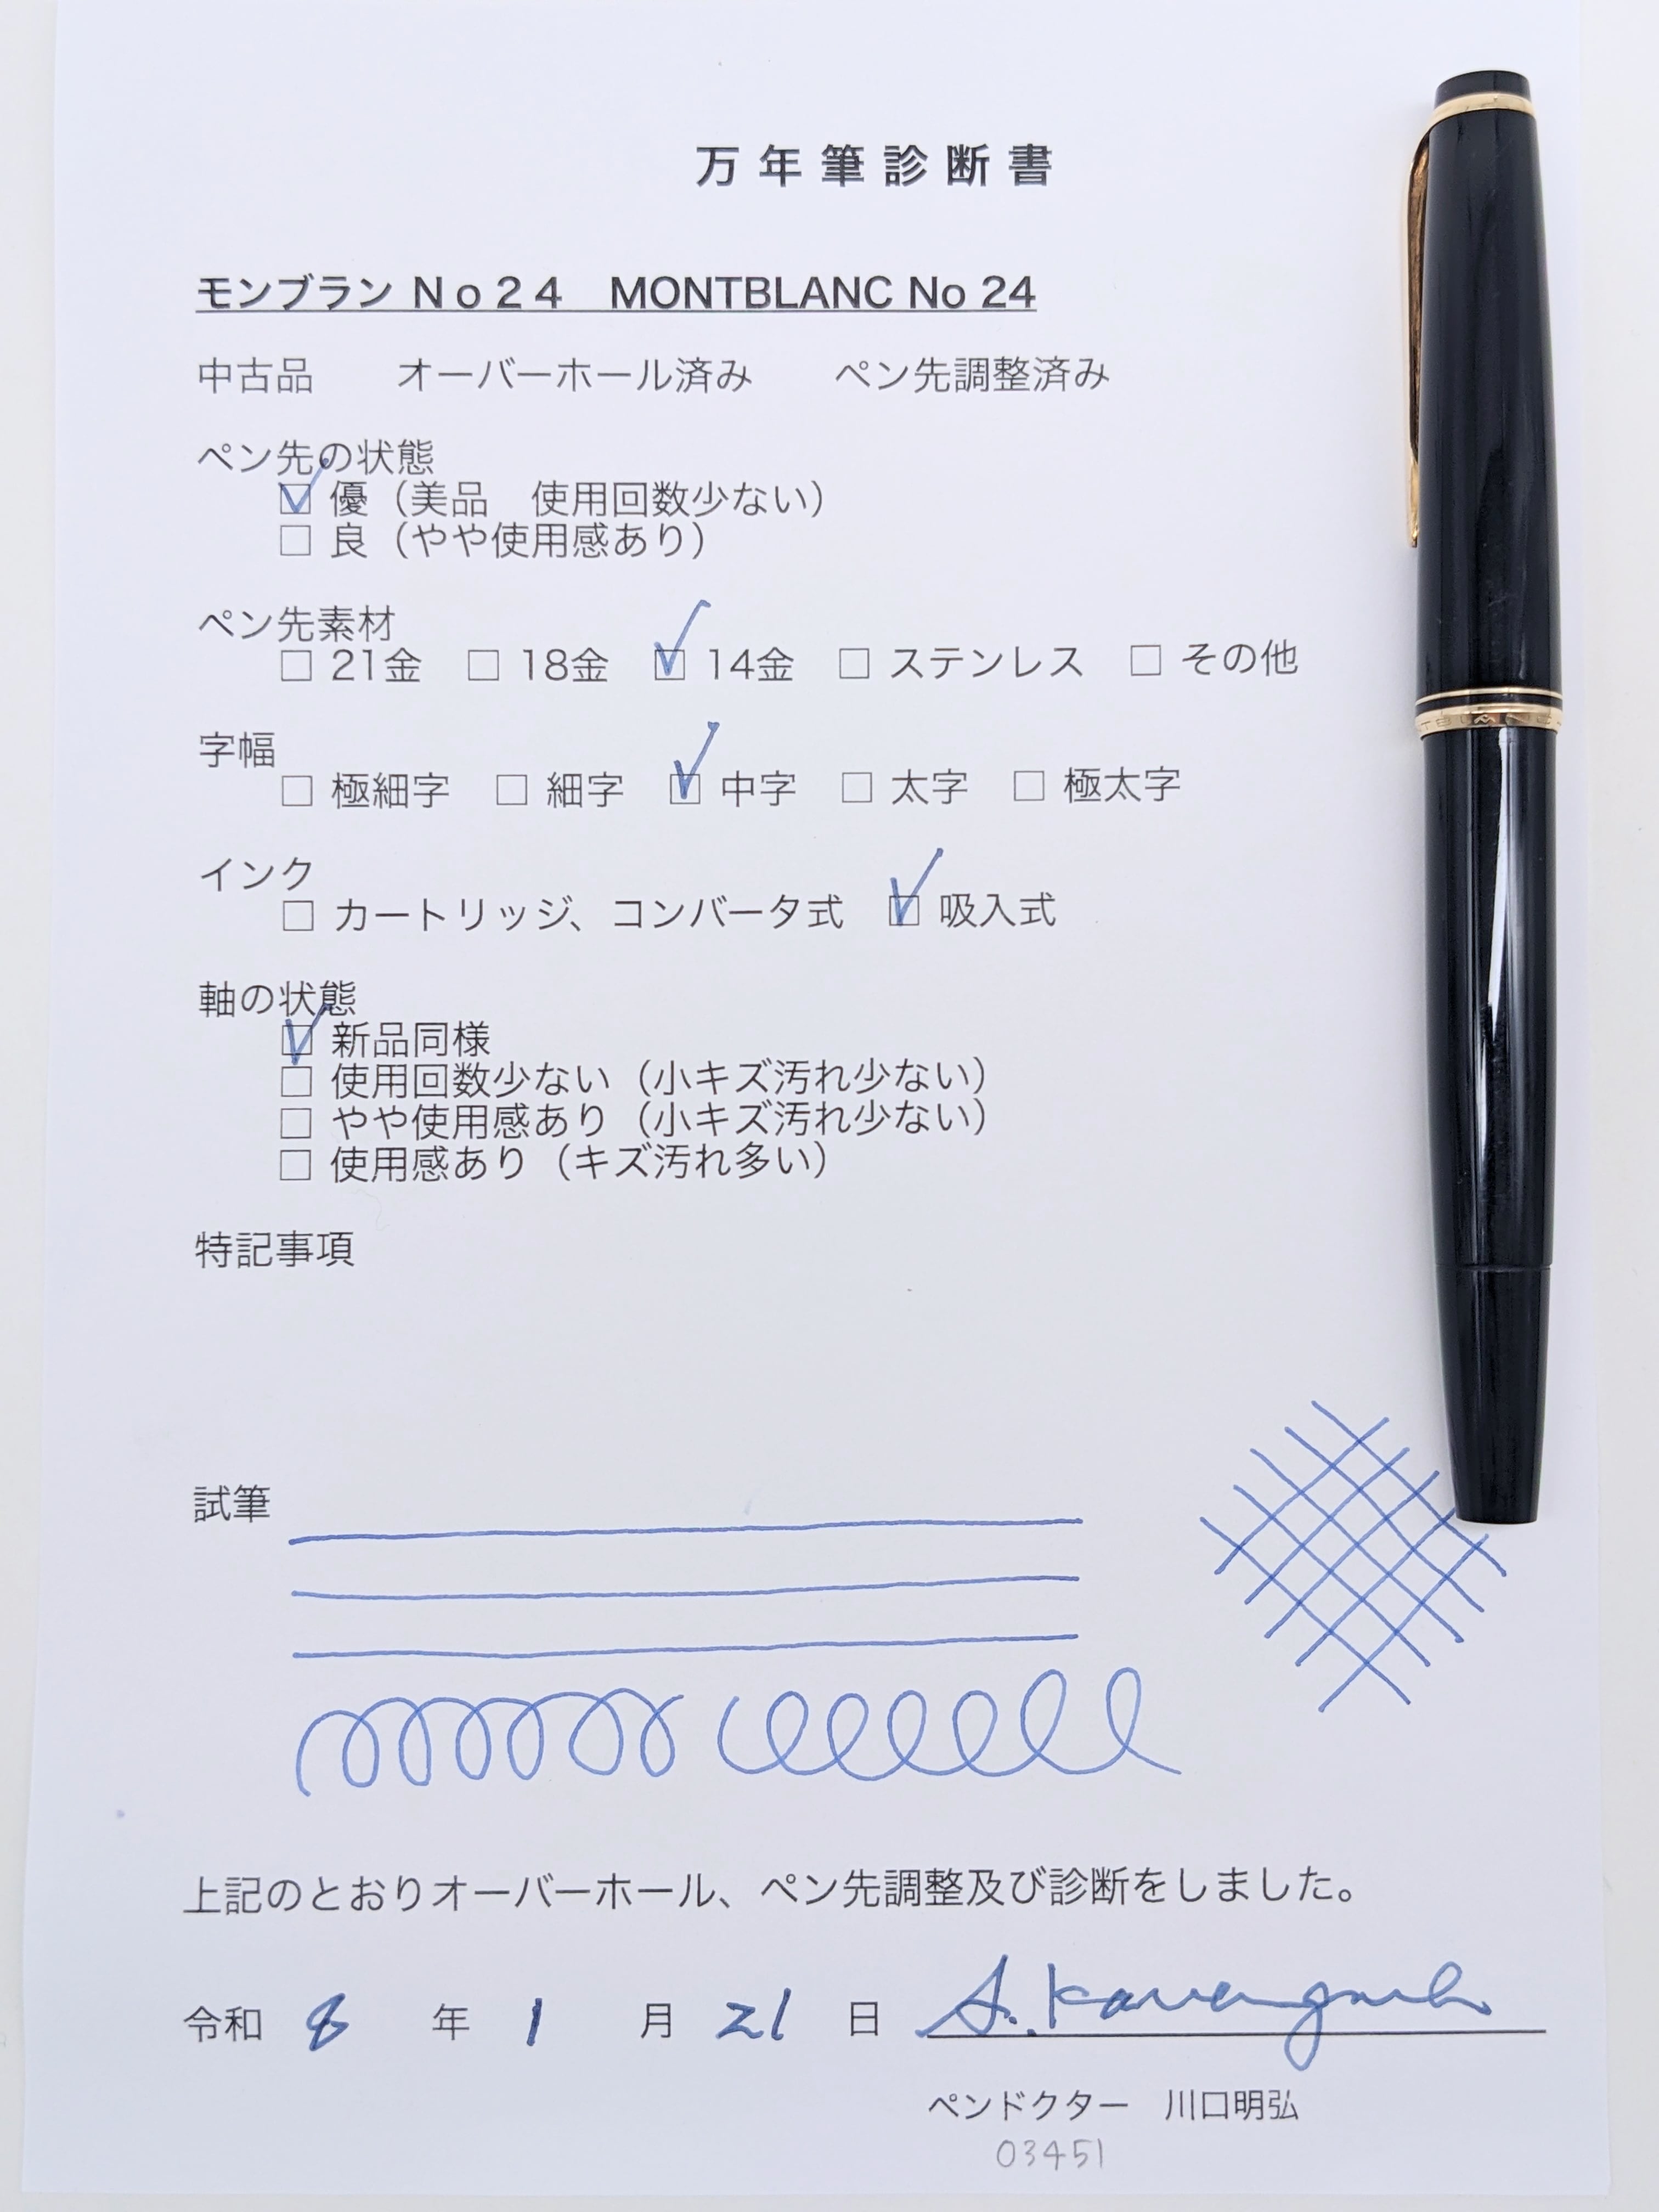 万年筆診断書
モンブラン No24　MONTBLANC No 24
中古品　　オーバーホール済み　　ペン先調整済み
ペン先の状態
☑ 優（美品　使用回数少ない）
□ 良（やや使用感あり）
ペン先素材
□ 21金　□ 18金　☑ 14金　□ ステンレス　□ その他
字幅
□ 極細字　□ 細字　☑ 中字　□ 太字　□ 極太字
インク
□ カートリッジ、コンバータ式　☑ 吸入式
軸の状態
☑ 新品同様
□ 使用回数少ない（小キズ汚れ少ない）
□ やや使用感あり（小キズ汚れ少ない）
□ 使用感あり（キズ汚れ多い）
特記事項
試筆
上記のとおりオーバーホール、ペン先調整及び診断をしました。
令和 8 年 1 月 21 日 A. Kawaguchi
ペンドクター　川口明弘
03451